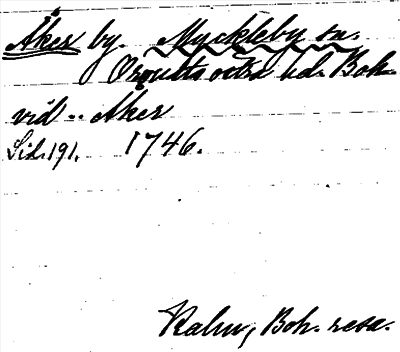 Åker by. Myckleby sn.
Orousts östra hd. Boh.
vid .. Aker
Sid. 191. 1746.
Kalm, Boh. resa.